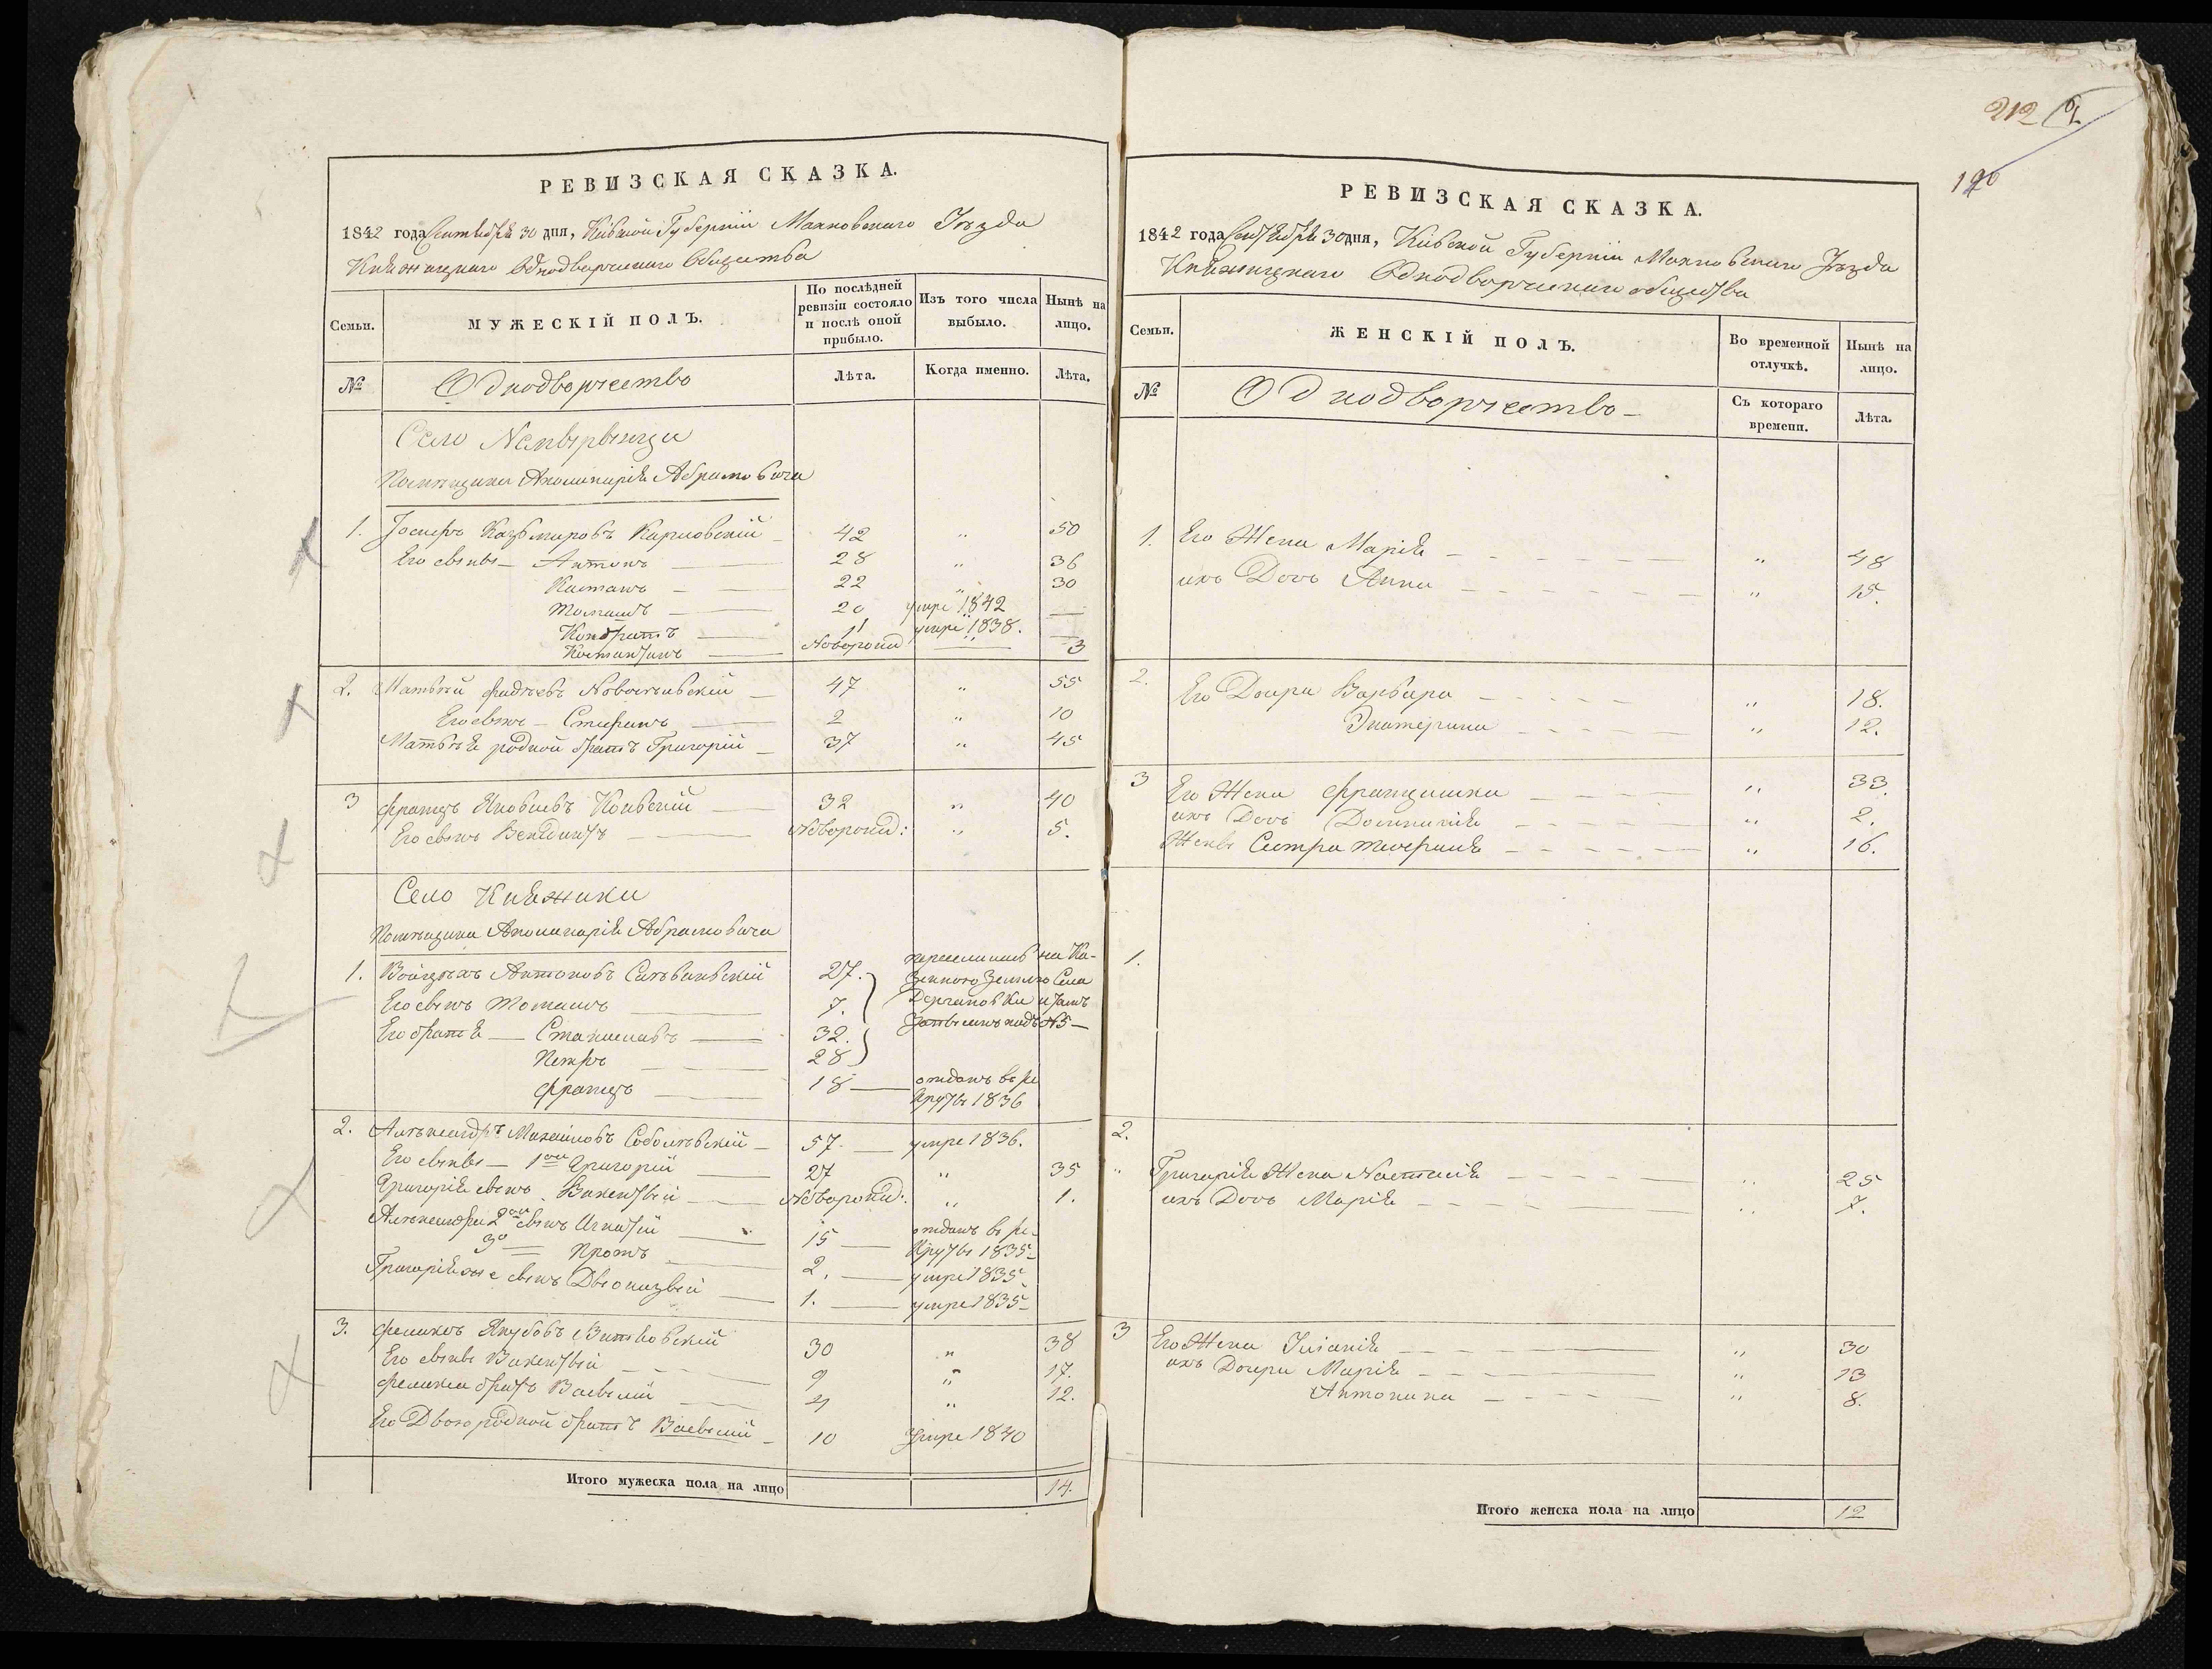 РЕВИЗСКАЯ СКАЗКА.
1842 года Сентября 30 дня, Кіевской Губерніи Махновскаго Уѣзда
Княжицкаго Однодворческаго Общества
Семьи.
МУЖЕСКІЙ ПОЛЪ.
По послѣдней ревизіи состояло и послѣ оной прибыло.
Изъ того числа выбыло.
Нынѣ на лицо.
№
Однодворчество
Лѣта.
Когда именно.
Лѣта.
Село
Помѣщика Аполинарія Абрамовича
1. Іосифъ Казьмировъ Карповскій 42 " 50
Его сыны Антонъ 28 " 36
Каетанъ 22 " 30
Томашъ 20 умре 1842 —
Кондратъ 11 умре 1838. —
Костантинъ Новорожд " 3
2. Матвѣй Фадѣевъ 47 " 55
Его сынъ Стефанъ 2 " 10
Матвѣя родной братъ Григорій 37 " 45
3 Францъ Яковлевъ 32 " 40
Его сынъ Венединтъ Новорожд: " 5.
Село Княжики
Помѣщика Аполинарія Абрамовича
1. Войцѣхъ Антоновъ 27. переселились на Ка-
Его сынъ Томашъ 7. зенную землю Села
Его братья Станиславъ 32.
Петръ 28
Францъ 18 отданъ въ ре
круты 1836
2. Александръ Михайловъ Соболевскій 57 умре 1836.
Его сыны 1ой Григорій 27 " 35
Григорія сынъ Викентый Новорожд: " 1.
Александра 2ой сынъ Игнатій 15 отданъ въ ре-
круты 1835
3й Протъ 2. умре 1835
Григорія же сынъ Діонизый 1. умре 1835
3. Феликсъ Якубовъ Витковскій 30 " 38
Его сынъ Викентый 9 " 17.
Феликса братъ Василій 4 " 12.
Его Двоюродной братъ Василій 10 Умре 1840
Итого мужеска пола на лицо 14.
212
РЕВИЗСКАЯ СКАЗКА.
1842 года Сентября 30 дня, Кіевской Губерніи Махновскаго Уѣзда
Княжицкаго Однодворческаго общества
Семьи.
ЖЕНСКІЙ ПОЛЪ.
Во временной отлучкѣ.
Нынѣ на лицо.
№
Однодворчество
Съ котораго времени.
Лѣта.
1. Его Жена Марія " 48
ихъ Дочь Анна " 15.
2. Его Дочри Варвара " 18.
Экатерина " 12.
3 Его Жена Францишка " 33.
ихъ Дочь Доминикія " 2.
Жены Сестра " 16.
1.
2.
" Григорія Жена Настасія " 25
ихъ Дочь Марія " 7.
3 Его Жена Юліанія " 30
ихъ Дочри Марія " 13
Антонина " 8.
Итого женска пола на лицо 12